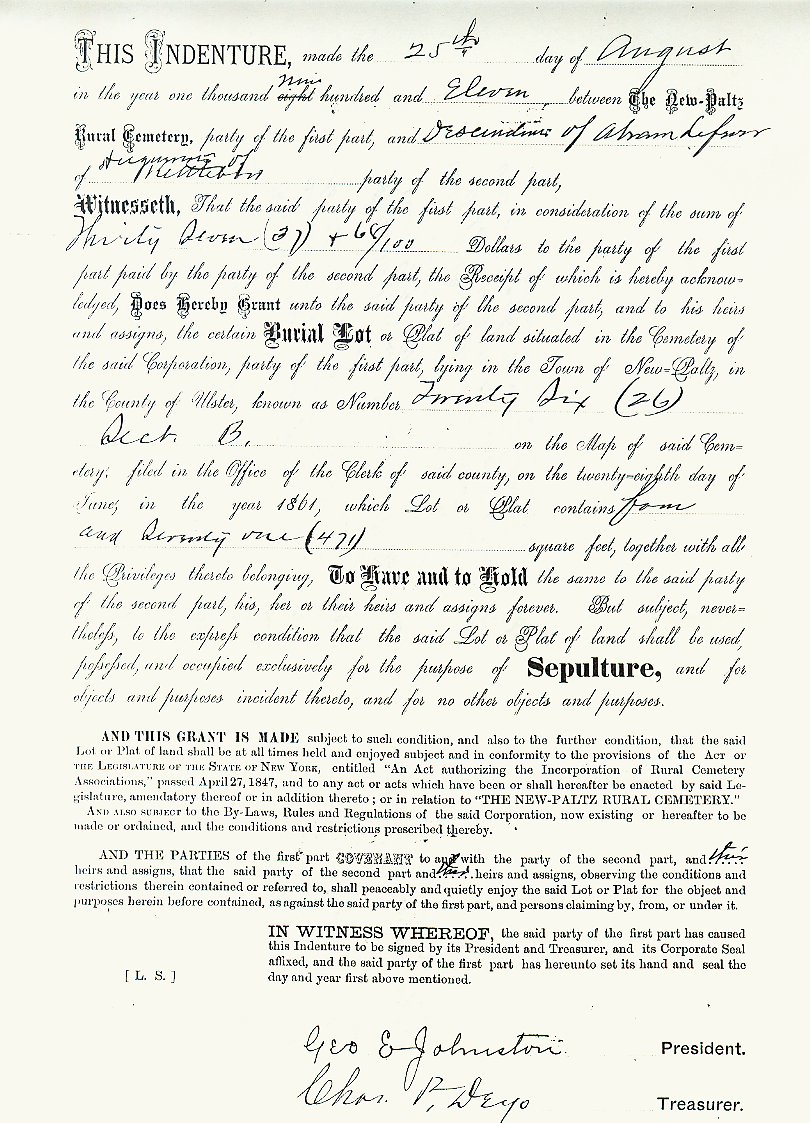 THIS INDENTURE, made the 25th day of August
Nine
in the year one thousand eight hundred and Eleven, between The New-Paltz
Rural Cemetery, party of the first part, and Descendants of Abram Lefever
of party of the second part,
Witnesseth, That the said party of the first part, in consideration of the sum of
Thirty Seven (37) + 68/100 Dollars to the party of the first
part paid by the party of the second part, the Receipt of which is hereby acknow=
ledged, Does Hereby Grant unto the said party of the second part, and to his heirs
and assigns, the certain Burial Lot or Plat of land situated in the Cemetery of
the said Corporation, party of the first part, lying in the Town of New=Paltz, in
the County of Ulster, known as Number Twenty Six (26)
Sect. B. on the Map of said Cem=
etery, filed in the Office of the Clerk of said county, on the twenty=eighth day of
June, in the year 1861, which Lot or Plat contains four
and Seventy one (471) square feet, together with all
the Privileges thereto belonging, To Have and to Hold the same to the said party
of the second part, his, her or their heirs and assigns forever. But subject, never=
theless, to the express condition that the said Lot or Plat of land shall be used,
possessed, and occupied exclusively for the purpose of Sepulture, and for
objects and purposes incident thereto, and for no other objects and purposes.
AND THIS GRANT IS MADE subject to such condition, and also to the further condition, that the said
Lot or Plat of land shall be at all times held and enjoyed subject and in conformity to the provisions of the Act of
the Legislature of the State of New York, entitled "An Act authorizing the Incorporation of Rural Cemetery
Associations," passed April 27, 1847, and to any act or acts which have been or shall hereafter be enacted by said Le-
gislature, amendatory thereof or in addition thereto; or in relation to "THE NEW-PALTZ RURAL CEMETERY."
And also subject to the By-Laws, Rules and Regulations of the said Corporation, now existing or hereafter to be
made or ordained, and the conditions and restrictions prescribed thereby.
AND THE PARTIES of the first part COVENANT to and with the party of the second part, and their
heirs and assigns, that the said party of the second part and their heirs and assigns, observing the conditions and
restrictions therein contained or referred to, shall peaceably and quietly enjoy the said Lot or Plat for the object and
purposes herein before contained, as against the said party of the first part, and persons claiming by, from, or under it.
IN WITNESS WHEREOF, the said party of the first part has caused
this Indenture to be signed by its President and Treasurer, and its Corporate Seal
affixed, and the said party of the first part has hereunto set its hand and seal the
[ L. S. ] day and year first above mentioned.
Geo E Johnston President.
Chas. P. Deyo Treasurer.